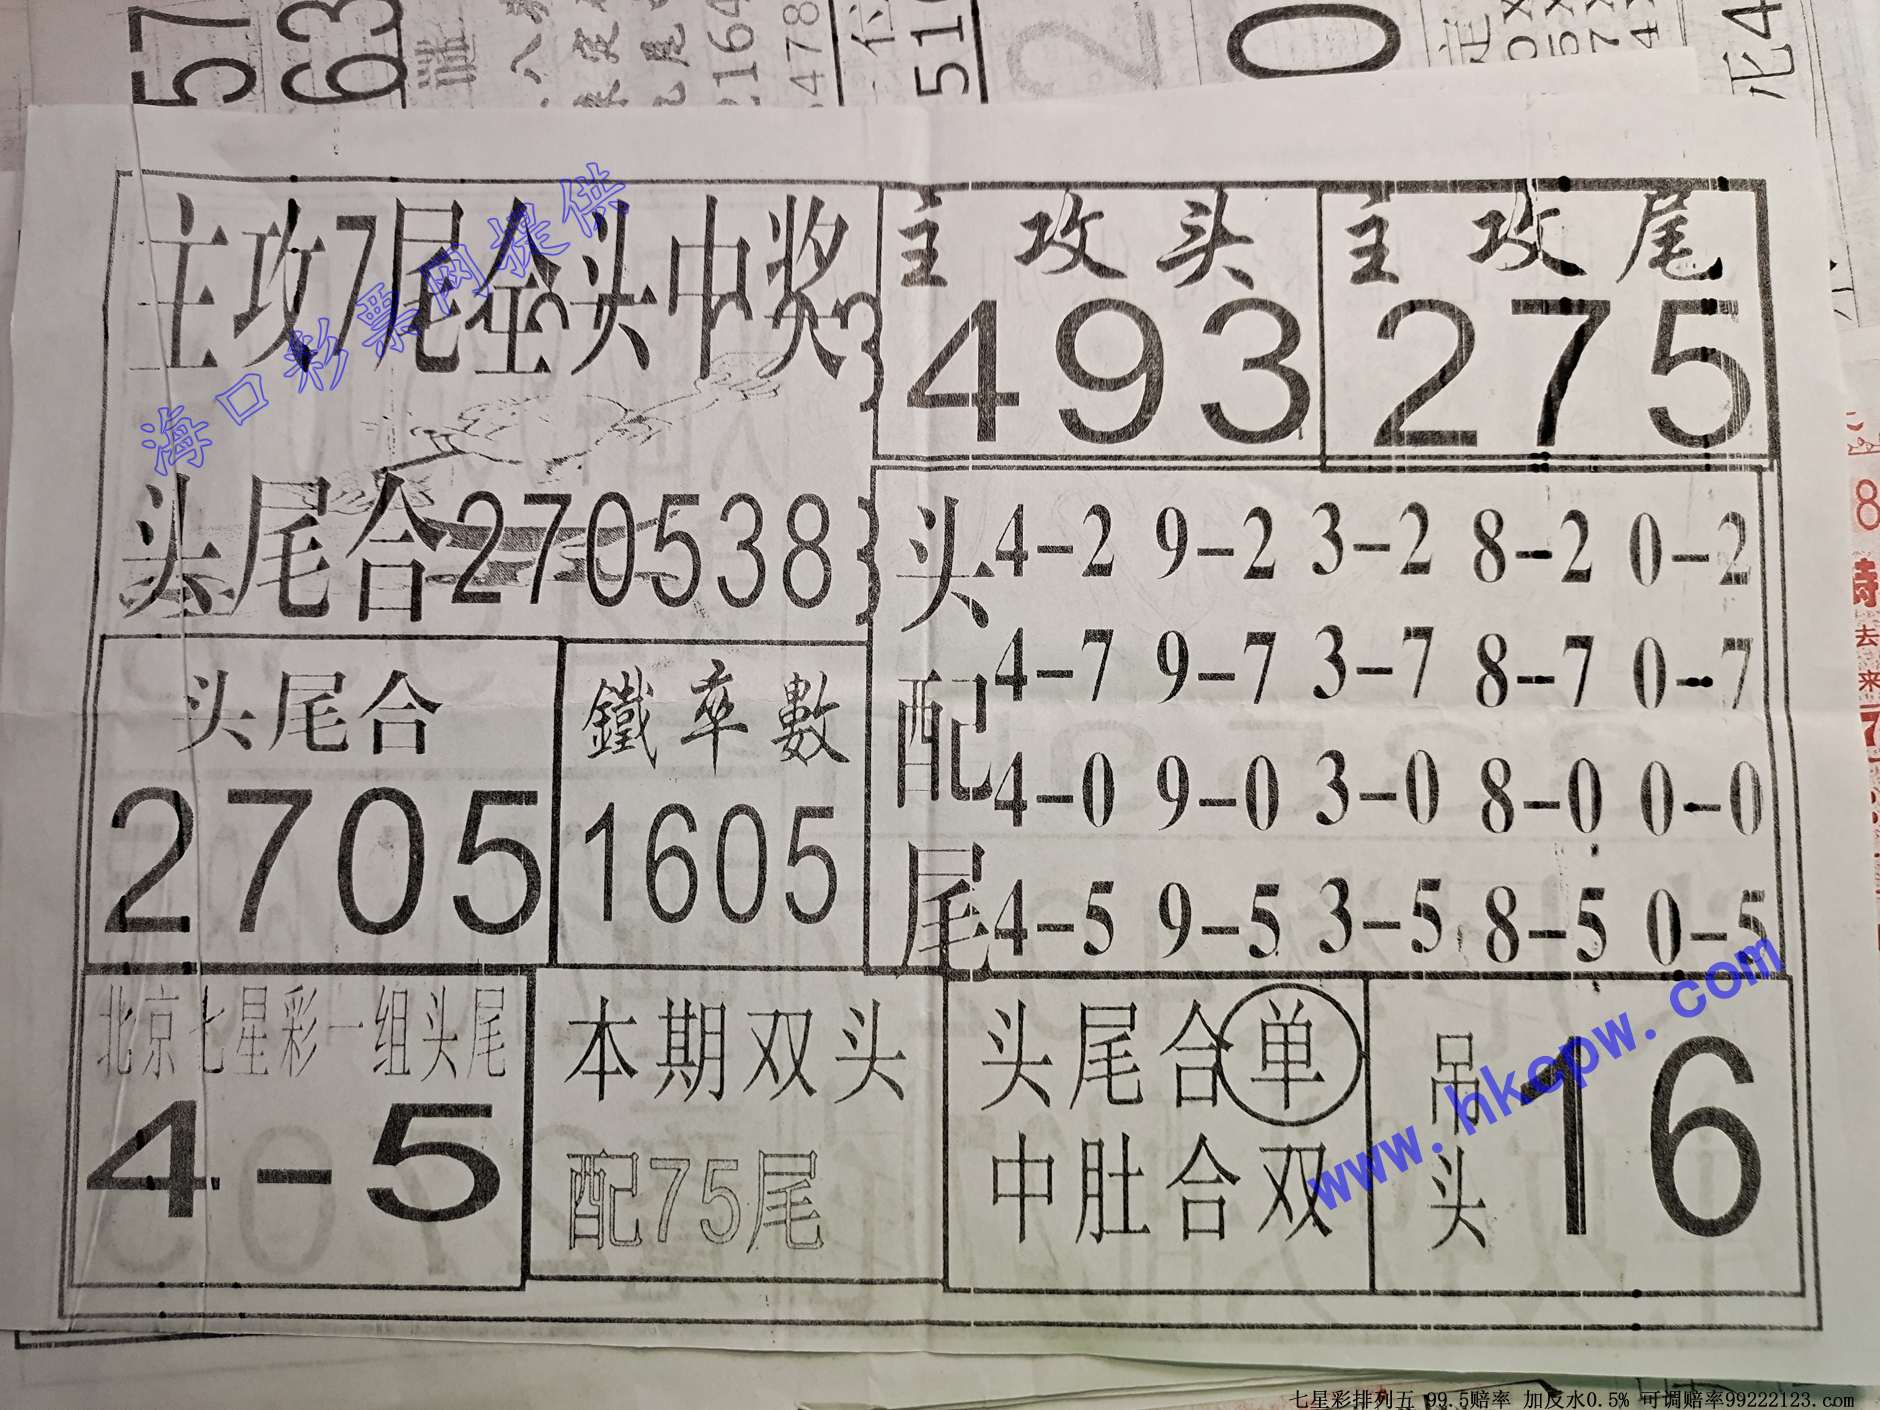 主攻7尾全头中奖
主攻头
493
主攻尾
275
头尾合270538
头尾合
2705
鐵率數
1605
头配尾
4-2 9-2 3-2 8-2 0-2
4-7 9-7 3-7 8-7 0-7
4-0 9-0 3-0 8-0 0-0
4-5 9-5 3-5 8-5 0-5
北京七星彩一组头尾
4-5
本期双头
配75尾
头尾合单
中肚合双
吊头
16
海口彩票网提供
www.hkcpw.com
七星彩排列五 99.5赔率 加反水0.5% 可调赔率99222123.com
57
63
2164
478
510
0
8
去
来